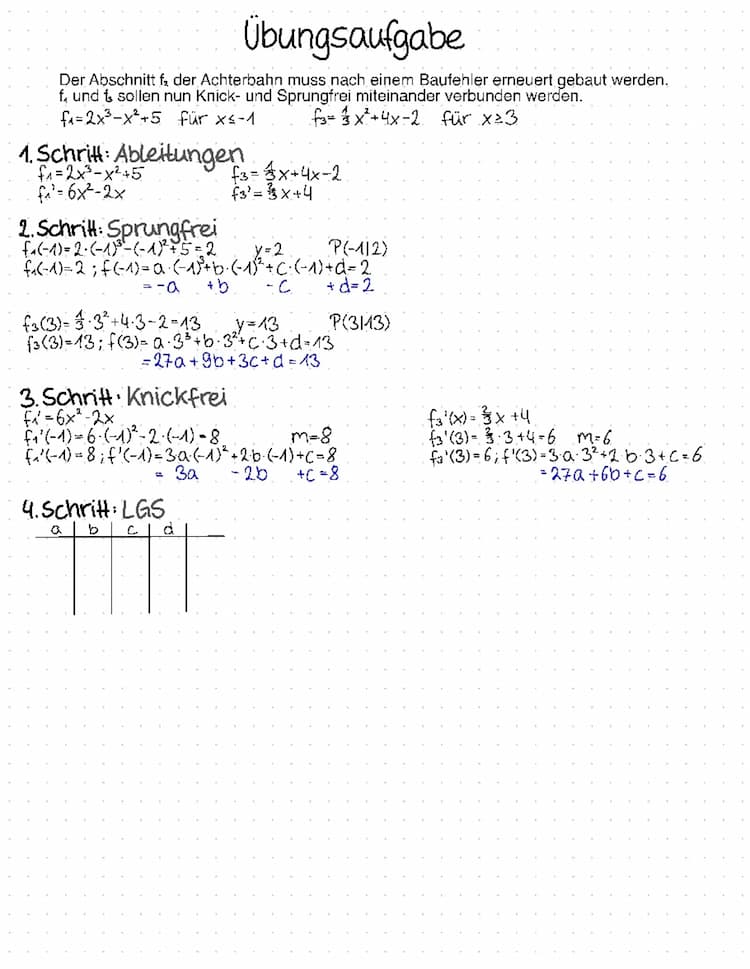 Übungsaufgabe
Der Abschnitt f₂ der Achterbahn muss nach einem Baufehler erneuert gebaut werden.
f₁ und f₃ sollen nun Knick- und Sprungfrei miteinander verbunden werden.
f₁=2x³-x²+5 für x≤-1 f₃= ⅓x²+4x-2 für x≥3
1. Schritt: Ableitungen
f₁=2x³-x²+5 f₃= ⅓x+4x-2
f₁'=6x²-2x f₃'= ⅔x+4
2. Schritt: Sprungfrei
f₁(-1)=2·(-1)³-(-1)²+5=2 y=2 P(-1|2)
f₁(-1)=2; f(-1)=a·(-1)³+b·(-1)²+c·(-1)+d=2
=-a +b -c +d=2
f₃(3)=⅓·3²+4·3-2=13 y=13 P(3|13)
f₃(3)=13; f(3)=a·3³+b·3²+c·3+d=13
=27a+9b+3c+d=13
3. Schritt: Knickfrei
f₁'=6x²-2x f₃'(x)=⅔x+4
f₁'(-1)=6·(-1)²-2·(-1)=8 m=8 f₃'(3)=⅔·3+4=6 m=6
f₁'(-1)=8; f'(-1)=3a·(-1)²+2b·(-1)+c=8 f₃'(3)=6; f'(3)=3·a·3²+2·b·3+c=6
= 3a -2b +c=8 =27a+6b+c=6
4. Schritt: LGS
a b c d